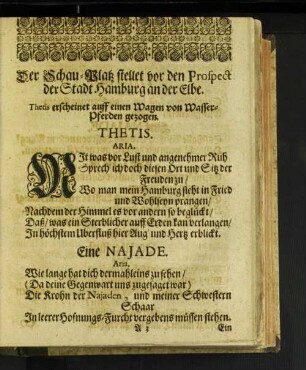 Der Schau-Platz stellet vor den Prospect
der Stadt Hamburg an der Elbe.
Thetis erscheinet auff einen Wagen von Wasser-
Pferden gezogen.
THETIS.
ARIA.
MIt was vor Lust und angenehmer Ruh
Sprech ich doch diesen Ort und Sitz der
Freuden zu/
Wo man mein Hamburg sieht in Fried
und Wohlseyn prangen/
Nachdem der Himmel es vor andern so beglückt/
Daß/ was ein Sterblicher auff Erden kan verlangen/
In höchstem Uberfluß hier Aug' und Hertz erblickt.
Eine NAJADE.
Aria.
Wie lange hat dich dermahleins zu sehen/
(Da deine Gegenwart uns zugesaget war)
Die Krohn der Najaden, und meiner Schwestern
Schaar
In leerer Hofnungs-Furcht vergebens müssen stehen.
A 2 Ein